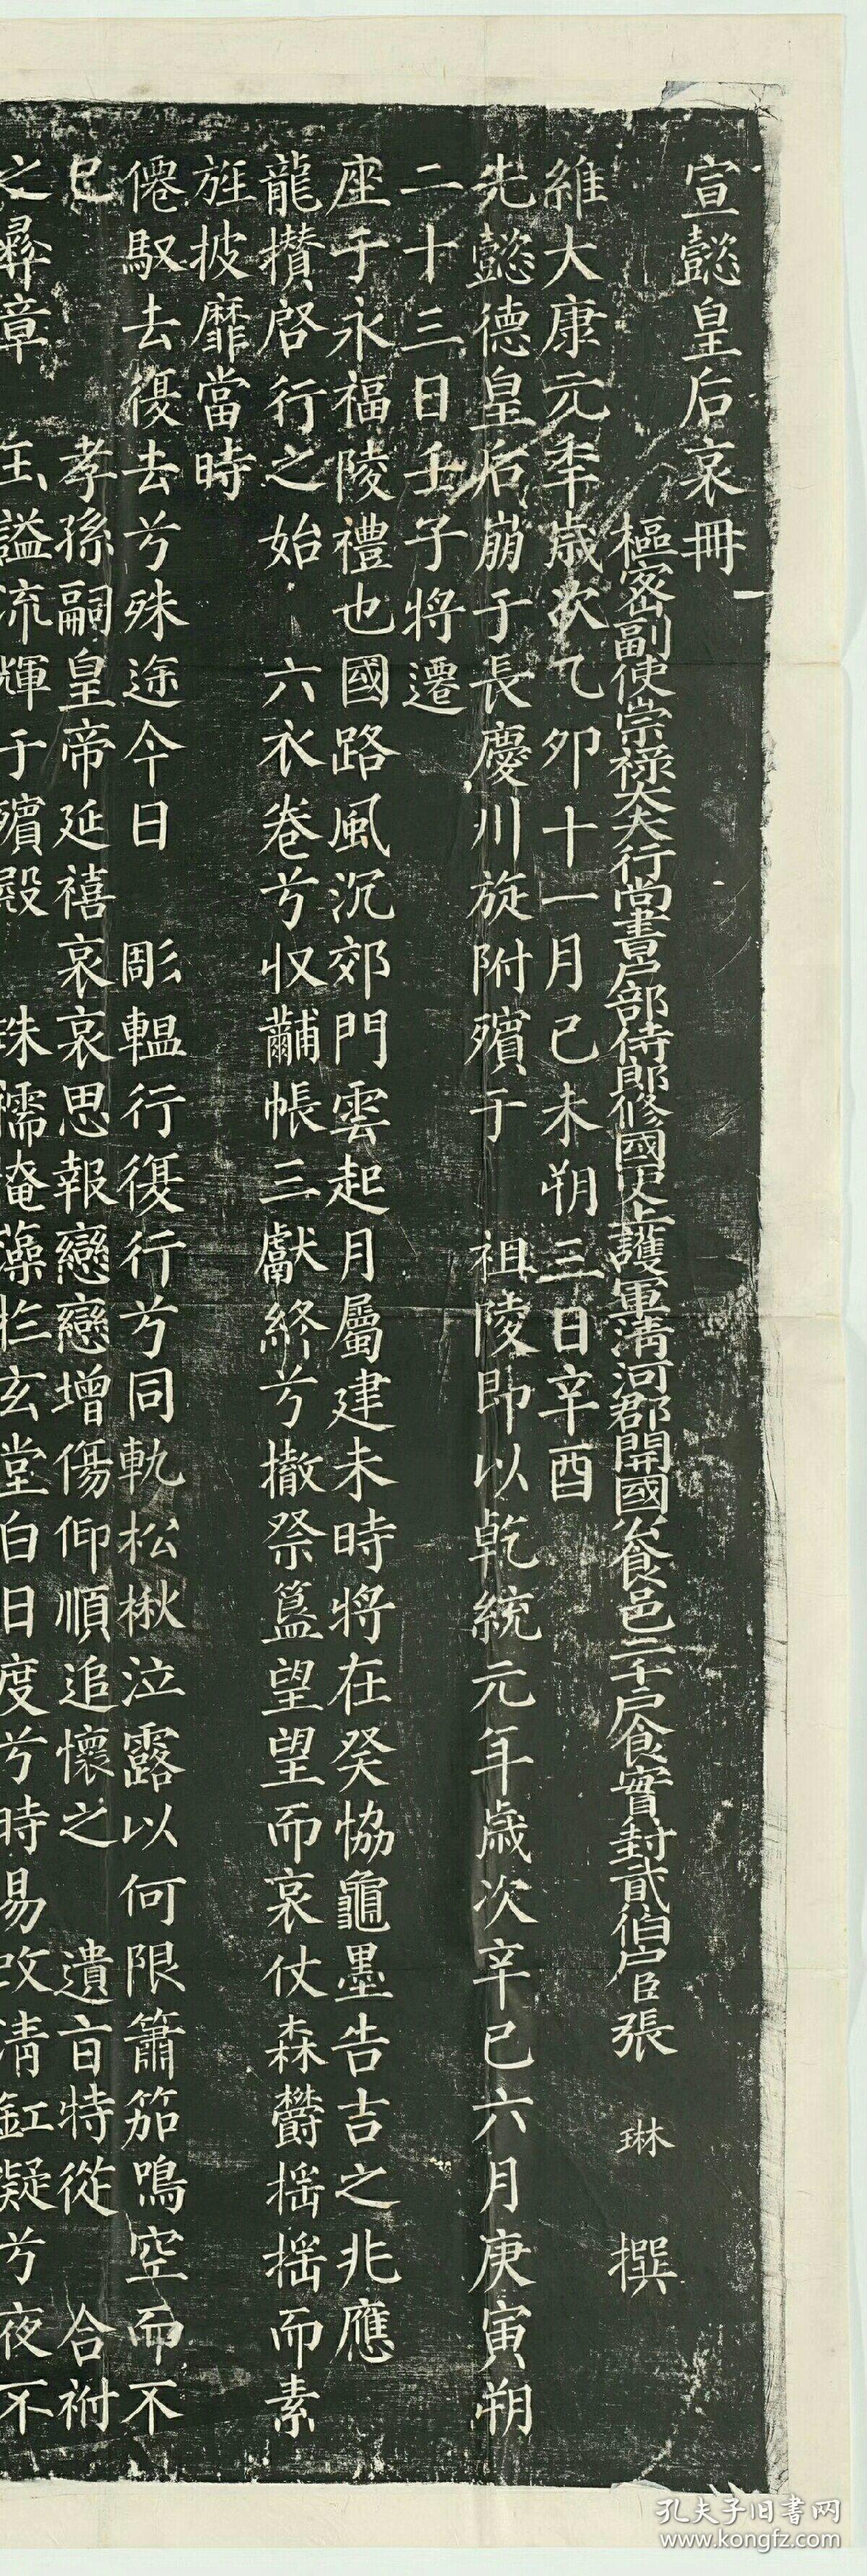 宣懿皇后哀冊
樞密副使崇祿大夫行尚書戶部侍郎修國史上護軍清河郡開國公食邑二千戶食實封貳伯戶臣張 琳 撰
維大康元年歲次乙卯十一月己未朔三日辛酉
先懿德皇后崩于長慶川旋附殯于 祖陵即以乾統元年歲次辛巳六月庚寅朔
二十三日壬子將遷
座于永福陵禮也國路風沉郊門雲起月屬建未時將在癸協龜墨告吉之兆應
龍攢啓行之始 六衣卷兮収黼帳三獻終兮撤祭簋望望而哀仗森欝搖搖而素
旌披靡當時
僊馭去復去兮殊途今日 彫轀行復行兮同軌松楸泣露以何限簫笳鳴空而不
已 孝孫嗣皇帝延禧哀哀思報戀戀增傷仰順追懷之 遺旨特從 合祔
之彞章 玉謚流輝于殯殿 珠襦掩藻扵玄堂白日度兮時易改清缸凝兮夜不
孔夫子旧書网
www.kongfz.com